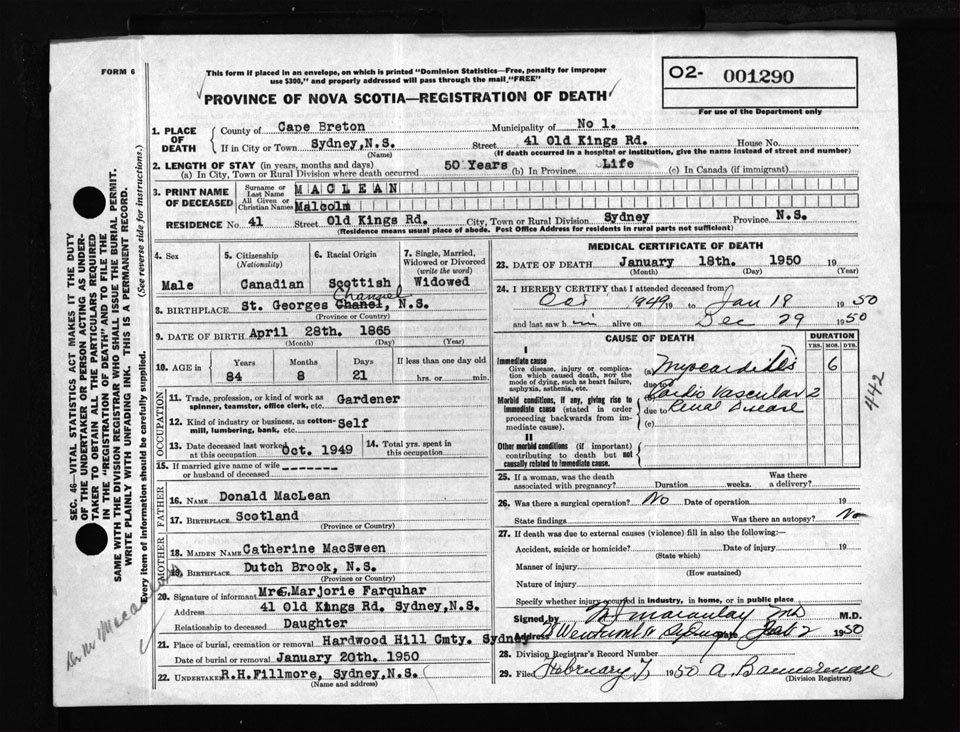 FORM 6
This form if placed in an envelope, on which is printed "Dominion Statistics—Free, penalty for improper
use $300," and properly addressed will pass through the mail "FREE"
PROVINCE OF NOVA SCOTIA—REGISTRATION OF DEATH
O2- 001290
For use of the Department only
1. PLACE OF DEATH { County of Cape Breton Municipality of No 1.
If in City or Town Sydney, N.S. Street 41 Old Kings Rd. House No.
(Name) (If death occurred in a hospital or institution, give the name instead of street and number)
2. LENGTH OF STAY (in years, months and days)
(a) In City, Town or Rural Division where death occurred 50 Years (b) In Province Life (c) In Canada (if immigrant)
3. PRINT NAME OF DECEASED { Surname or Last Name MACLEAN
All Given or Christian Names Malcolm
RESIDENCE No. 41 Street Old Kings Rd. City, Town or Rural Division Sydney Province N.S.
(Residence means usual place of abode. Post Office Address for residents in rural parts not sufficient)
4. Sex
Male
5. Citizenship
(Nationality)
Canadian
6. Racial Origin
Scottish
7. Single, Married,
Widowed or Divorced
(write the word)
Widowed
Channel
8. BIRTHPLACE St. Georges Chanel, N.S.
(Province or Country)
9. DATE OF BIRTH April 28th. 1865
(Month) (Day) (Year)
10. AGE in { Years Months Days If less than one day old
84 8 21 hrs. or min.
OCCUPATION
11. Trade, profession, or kind of work as
spinner, teamster, office clerk, etc. Gardener
12. Kind of industry or business, as cotton-
mill, lumbering, bank, etc. Self
13. Date deceased last worked
at this occupation Oct. 1949
14. Total yrs. spent in
this occupation
15. If married give name of wife -------
or husband of deceased
FATHER
16. NAME Donald MacLean
17. BIRTHPLACE Scotland
(Province or Country)
MOTHER
18. MAIDEN NAME Catherine MacSween
19. BIRTHPLACE Dutch Brook, N.S.
(Province or Country)
20. Signature of informant Mrs. Marjorie Farquhar
Address 41 Old Kings Rd. Sydney, N.S.
Relationship to deceased Daughter
21. Place of burial, cremation or removal Hardwood Hill Cmty. Sydney
Date of burial or removal January 20th. 1950
22. UNDERTAKER R.H. Fillmore, Sydney, N.S.
(Name and address)
MEDICAL CERTIFICATE OF DEATH
23. DATE OF DEATH January 18th. 1950 19
(Month) (Day) (Year)
24. I HEREBY CERTIFY that I attended deceased from
Oct 1949 19 to Jan 18 1950
and last saw him alive on Dec 29 1950
CAUSE OF DEATH
DURATION
YRS. MOS. DYS.
I
Immediate cause
Give disease, injury or complica-
tion which caused death, NOT the
mode of dying, such as heart failure,
asphyxia, asthenia, etc.
(a) Myocarditis 6
due to
Morbid conditions, if any, giving rise to
immediate cause (stated in order
proceeding backwards from im-
mediate cause).
Cardio Vascular 2
due to Renal Disease
(c)
II
Other morbid conditions (if important)
contributing to death but not
causally related to immediate cause.
442
25. If a woman, was the death
associated with pregnancy? Duration weeks. Was there
a delivery?
26. Was there a surgical operation? No Date of operation 19
State findings Was there an autopsy? No
27. If death was due to external causes (violence) fill in also the following:—
Accident, suicide or homicide? Date of injury 19
(State which)
Manner of injury
(How sustained)
Nature of injury
Specify whether injury occurred in industry, in home, or in public place
Signed by Macaulay MD M.D.
Address Sydney Date Feb 2 1950
28. Division Registrar's Record Number
29. Filed February 7 1950 A. Bannerman
(Division Registrar)
SEC. 46—VITAL STATISTICS ACT MAKES IT THE DUTY
OF THE UNDERTAKER OR PERSON ACTING AS UNDER-
TAKER TO OBTAIN ALL THE PARTICULARS REQUIRED
IN THE "REGISTRATION OF DEATH" AND TO FILE THE
SAME WITH THE DIVISION REGISTRAR WHO SHALL ISSUE THE BURIAL PERMIT.
WRITE PLAINLY WITH UNFADING INK. THIS IS A PERMANENT RECORD.
Every item of information should be carefully supplied. (See reverse side for instructions.)